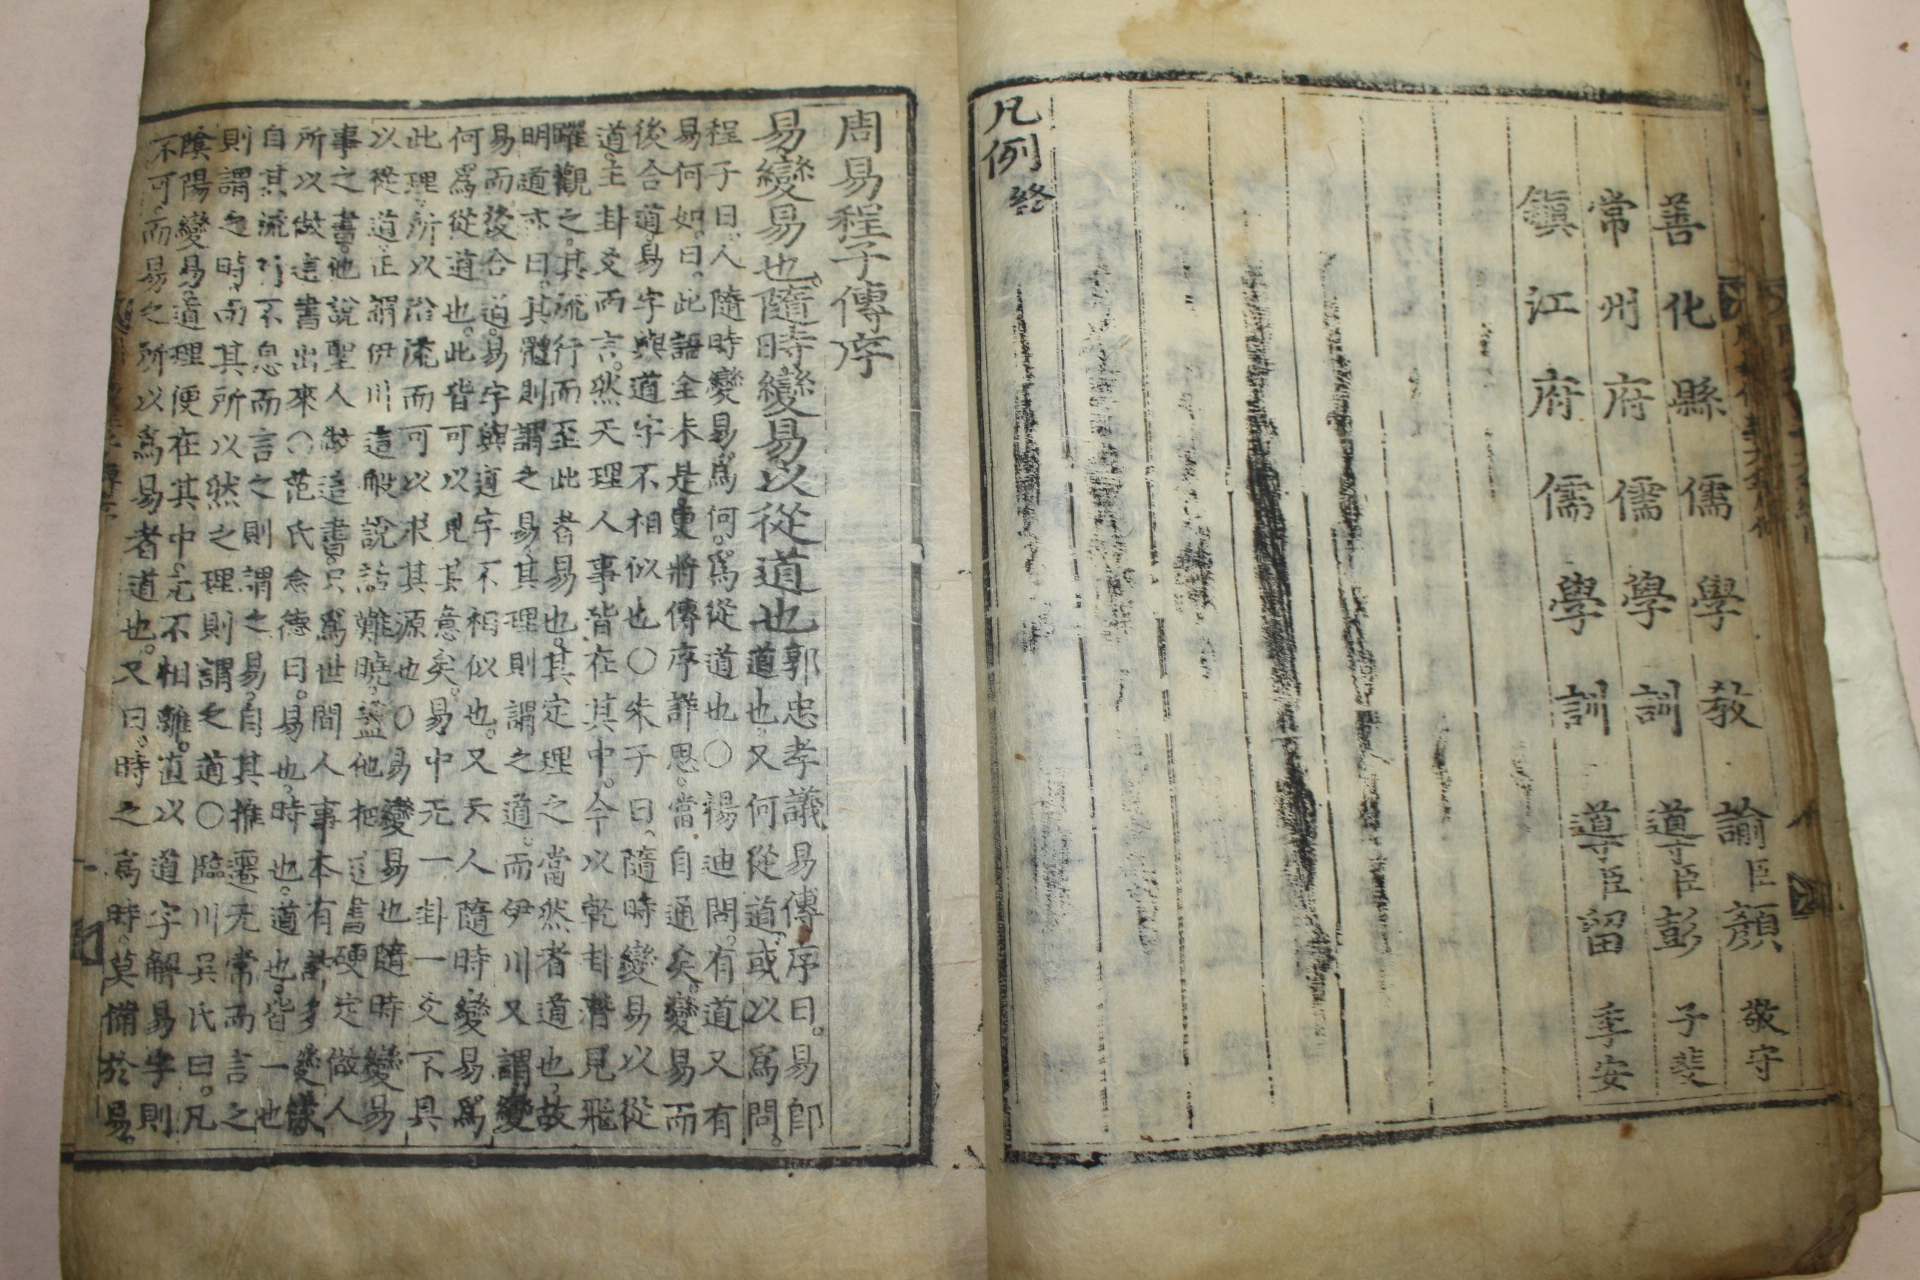 善化縣儒學教諭臣顏敬守
常州府儒學訓導臣彭子斐
鎭江府儒學訓導臣留季安
凡例終
周易程子傳序
易變易也隨時變易以從道也
郭忠孝議易傳序曰。易卽
道也。又何從道。或以爲問。
程子曰。人隨時變易爲何。爲從道也○楊迪問。有道又有
易何如。曰。此語全未是。更將傳序詳思。當自通矣。變易而
後合道。易字與道字不相似也○朱子曰。隨時變易以從
道。主卦爻而言。然天理人事皆在其中。今以乾卦潛見飛
躍觀之。其流行而至此者易也。其定理之當然者道也。故
明道亦曰。其體則謂之易。其理則謂之道。而伊川又謂變
易而後合道。易字與道字不相似也。又云人隨時變易爲
何爲從道也。此皆可以見其意矣。易中无一卦一爻不具
此理。所以沿流而可以求其源也○易變易也隨時變易
以從道正謂伊川這般說話難曉。蓋他把這書硬定做人
事之書。他說聖人做這書。只爲世間人事本有許多變㨾
所以做這書出來○范氏念德曰。易也。時也。道也。皆一也
自其流行不息而言之則謂之易。自其推遷无常而言之
則謂之時。而其所以然之理則謂之道○臨川吳氏曰。凡
陰陽變易。道理便在其中。元不相離。直以道字解易字則
不可。而易之所以爲易者道也。又曰。時之爲時。莫備於易。